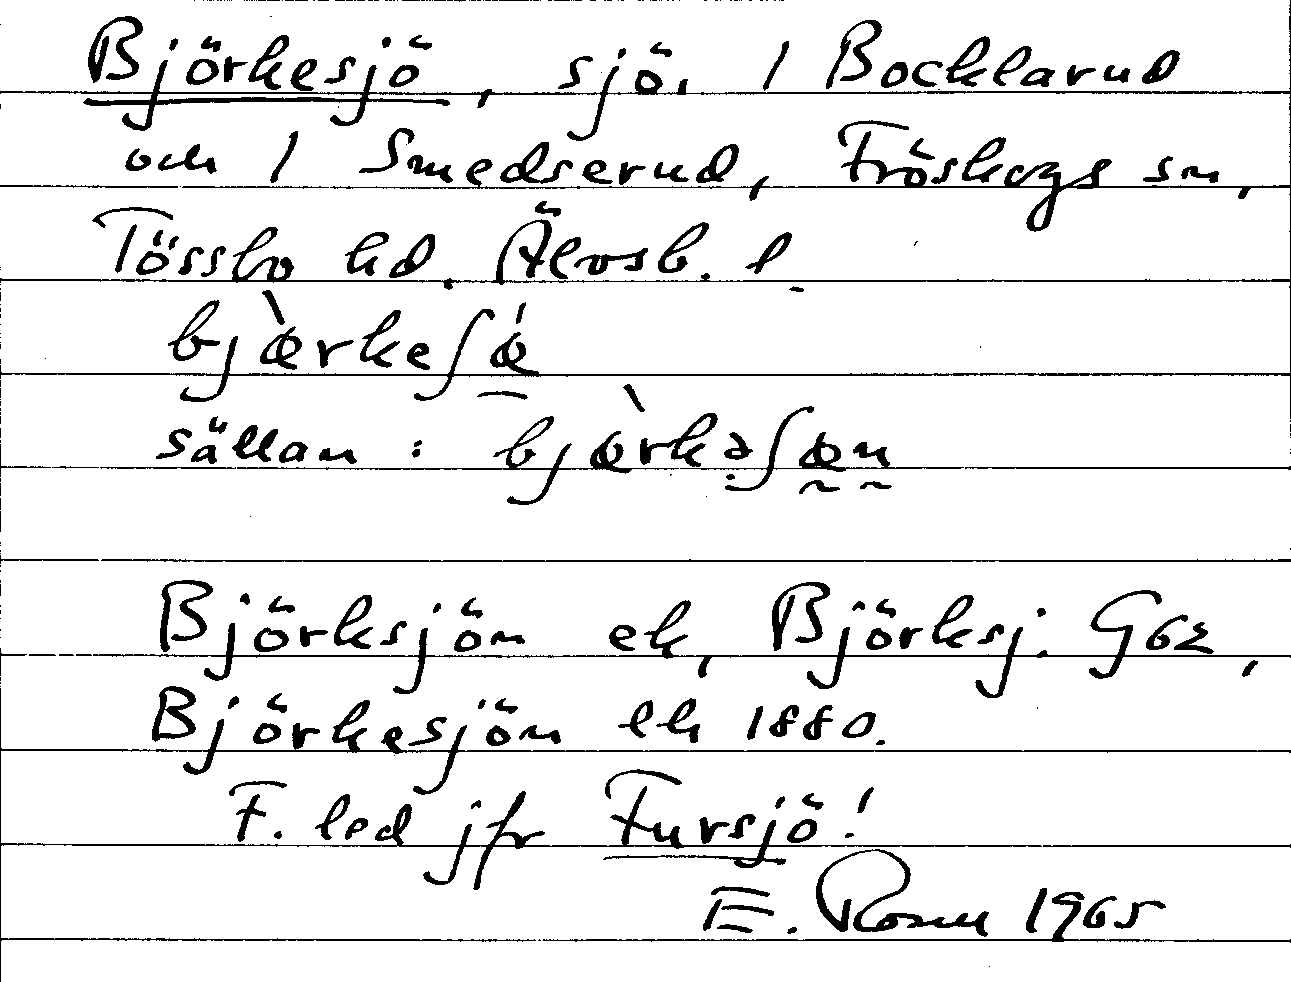 Björkesjö, sjö. / Bocklarud
och / Smedserud, Fröskogs sn,
Tössbo hd. Älvsb. l
bjæ̀rkeʃǽ
sällan : bjæ̀rkəʃæn
Björksjön ek, Björksj. G62,
Björkesjön ek 1880.
F. led jfr Fursjö!
E. 1965